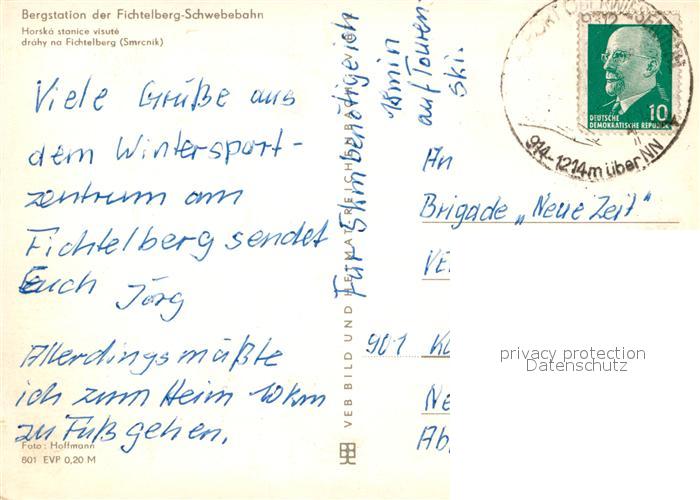 Bergstation der Fichtelberg-Schwebebahn
Horská stanice visuté
dráhy na Fichtelberg (Smrcník)
Viele Grüße aus
dem Wintersport-
zentrum am
Fichtelberg sendet
Euch Jörg
Allerdings müßte
ich zum Heim 10km
zu Fuß gehen.
Foto: Hoffmann
801 EVP 0,20 M
Für 5km benötige ich
18min
auf Touren-
ski.
VEB BILD UND HEIMAT REICHENBACH
An
Brigade „Neue Zeit"
VE
901 K
Ne
Ab
10
DEUTSCHE
DEMOKRATISCHE REPUBLIK
914-1214m über NN
privacy protection
Datenschutz